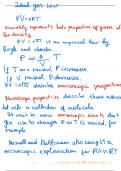 Ideal gas law
PV = nRT
accurately represents the properties of gases at
low density
PV = nRT is an empirical law by
Boyle and Charles.
P ∝ T/V
If T is raised, P increases.
If V raised P decreases.
PV = nRT describes macroscopic properties
Macroscopic properties describe those
with a collection of molecules.
It uses to more macroscopic work, that
gas rule to change P as T is raised for
example
Maxwell and Boltzmann also sought a
microscopic explanation for PV=nRT